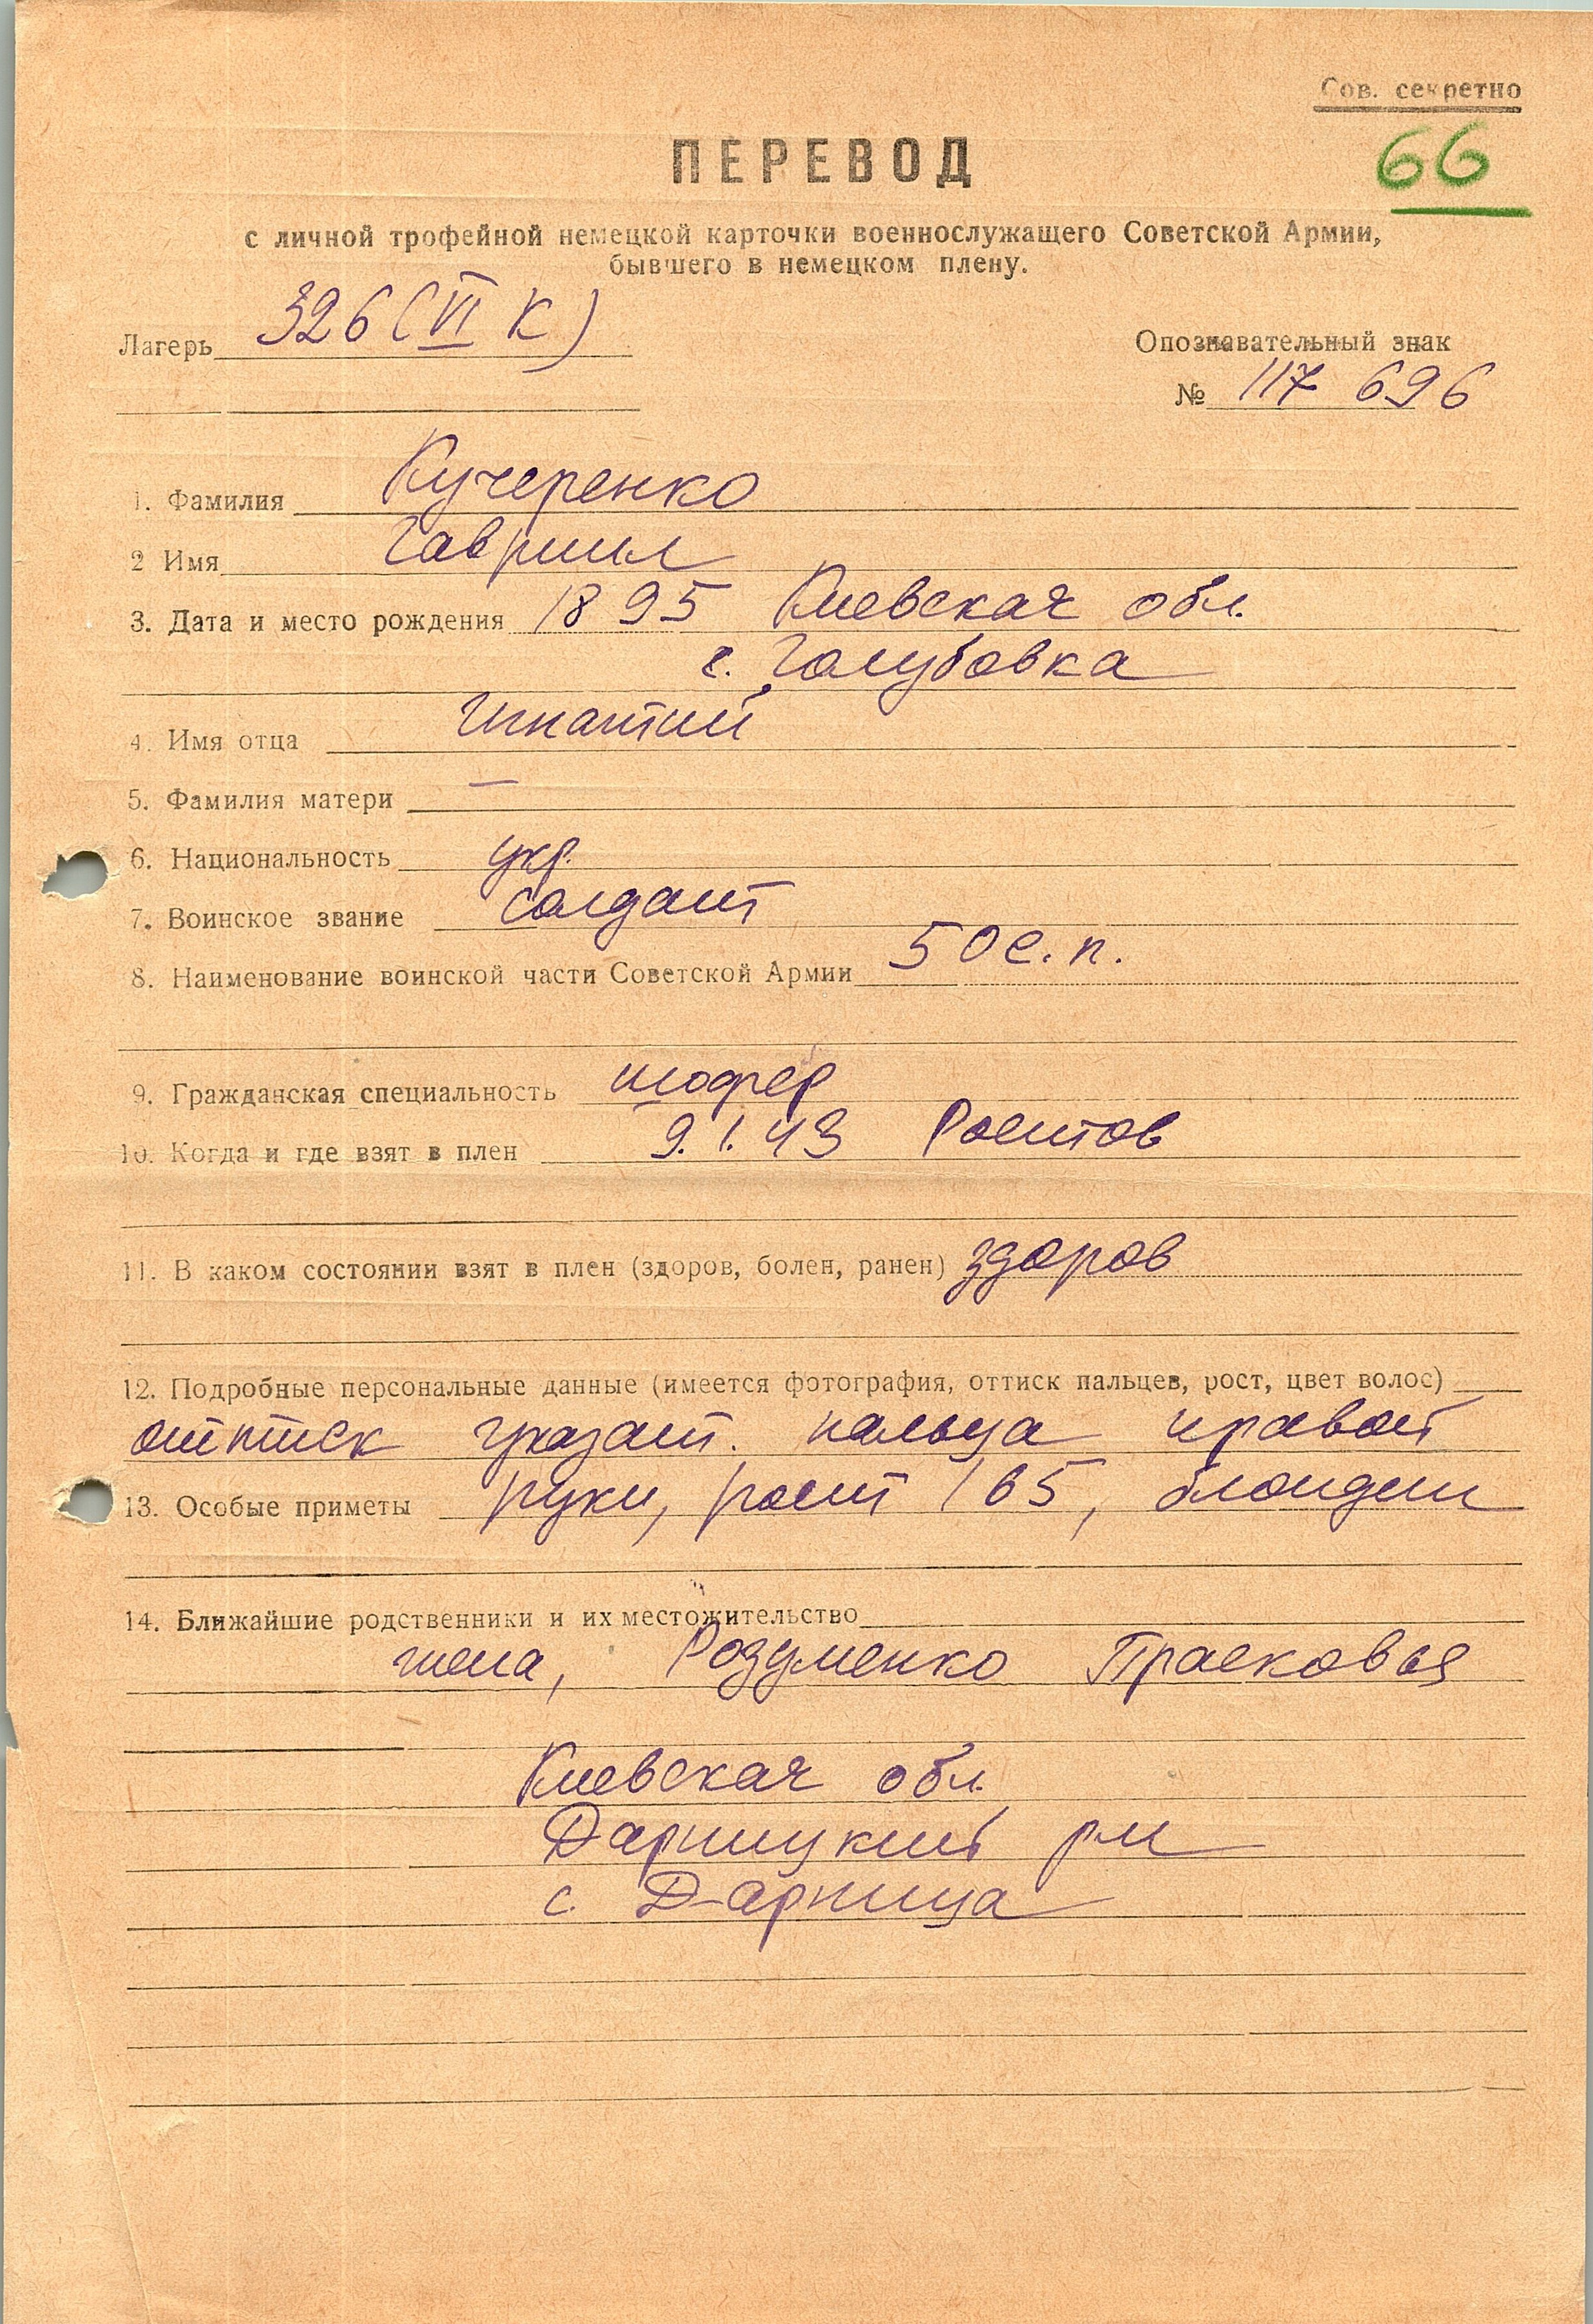 Сов. секретно
66
ПЕРЕВОД
с личной трофейной немецкой карточки военнослужащего Советской Армии,
бывшего в немецком плену.
Лагерь 326 (VI K)
Опознавательный знак
№ 117 696
1. Фамилия Кучеренко
2 Имя Гавриил
3. Дата и место рождения 1895 Киевская обл.
с. Голубовка
4. Имя отца Игнатий
5. Фамилия матери —
6. Национальность укр.
7. Воинское звание солдат
8. Наименование воинской части Советской Армии 50 с. п.
9. Гражданская специальность шофер
10. Когда и где взят в плен 9.1.43 Ростов
11. В каком состоянии взят в плен (здоров, болен, ранен) здоров
12. Подробные персональные данные (имеется фотография, оттиск пальцев, рост, цвет волос)
оттиск указат. пальца правой
13. Особые приметы руки, рост 165, блондин
14. Ближайшие родственники и их местожительство
жена, Розуменко Прасковья
Киевская обл.
Дарницкий рн
с. Дарница